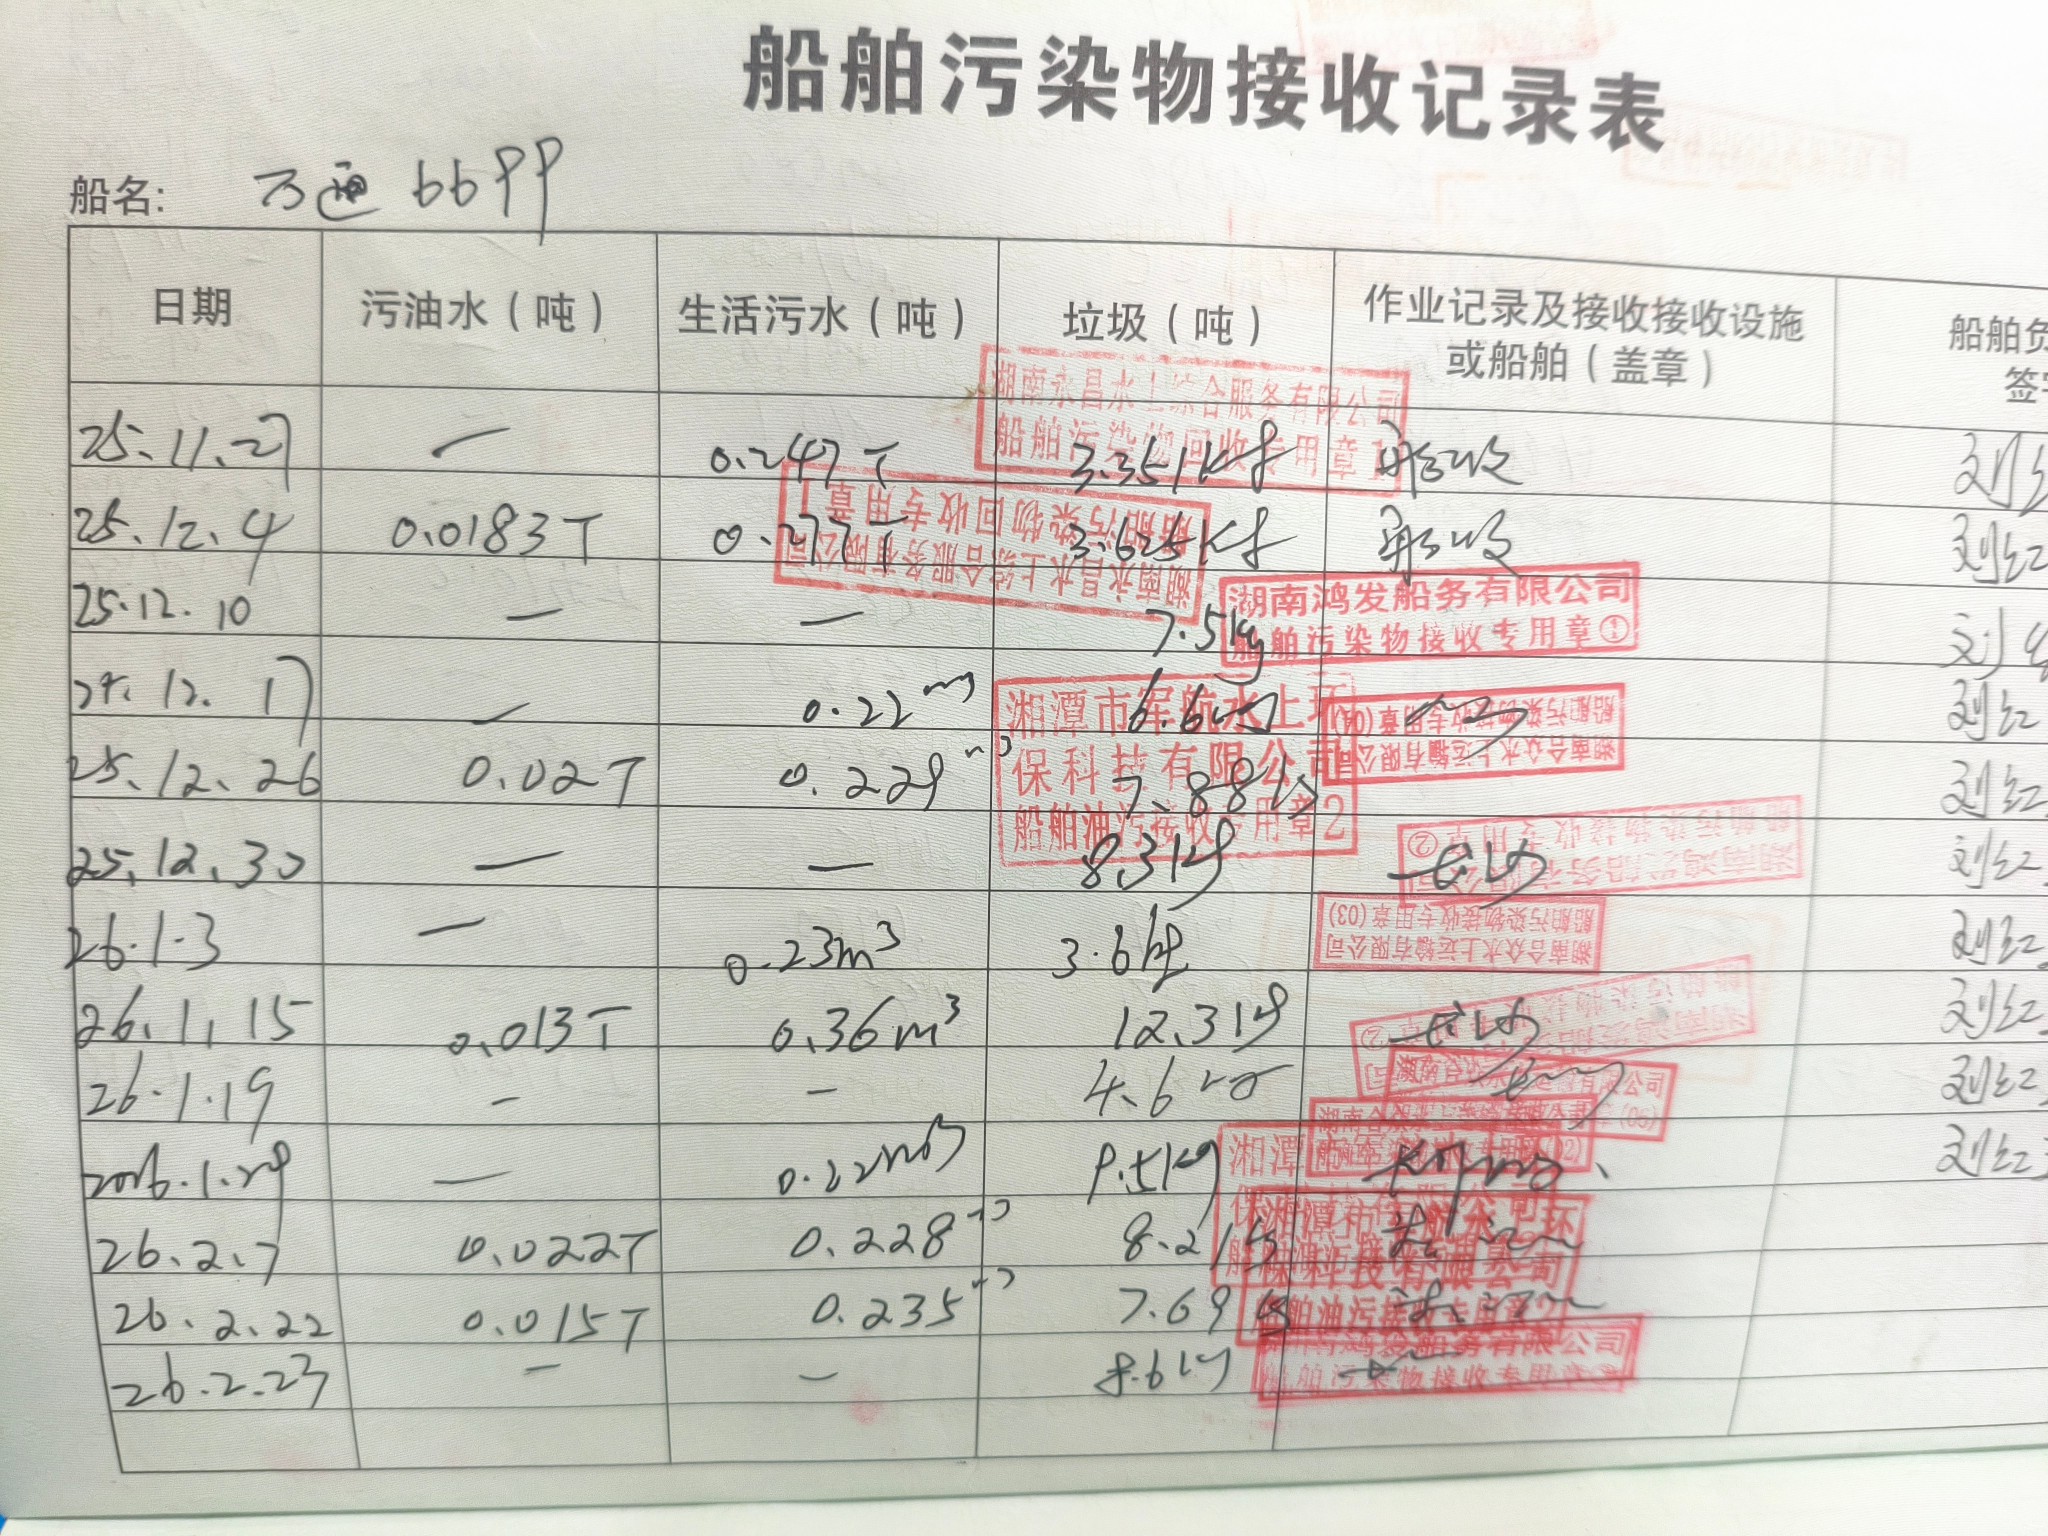 船舶污染物接收记录表
船名: 万通 6699
日期 污油水（吨） 生活污水（吨） 垃圾（吨） 作业记录及接收接收设施或船舶（盖章） 船舶负
签字
湖南永昌水上综合服务有限公司
船舶污染物回收专用章1
25.11.27 — 0.247T 3.351kg 刘红
湖南永昌水上综合服务有限公司
船舶污染物回收专用章1
25.12.4 0.0183T 0.277T 3.625kg 刘红
湖南鸿发船务有限公司
船舶污染物接收专用章①
25.12.10 — — 7.5kg 刘红
湘潭市军航水上环
保科技有限公司
船舶油污接收专用章2
湖南合众水上运输有限公司
船舶污染物接收专用章(04)
12.17 — 0.22m3 刘红
25.12.26 0.02T 0.229m3 7.88kg 刘红
船舶污染物接收专用章②
25.12.30 — — 8.3kg 长沙 刘红
湖南合众水上运输有限公司
船舶污染物接收专用章(03)
26.1.3 — 0.23m³ 3.6kg 刘红
26.1.15 0.013T 0.36m³ 12.3kg 长沙 刘红
26.1.19 — — 4.6 刘红
2026.1.29 — 0.22m3 9.5kg 刘红
26.2.7 0.022T 0.228m3 8.21kg
26.2.22 0.015T 0.235m3 7.69kg
湖南鸿发船务有限公司
船舶污染物接收专用章
26.2.23 — — 8.6kg